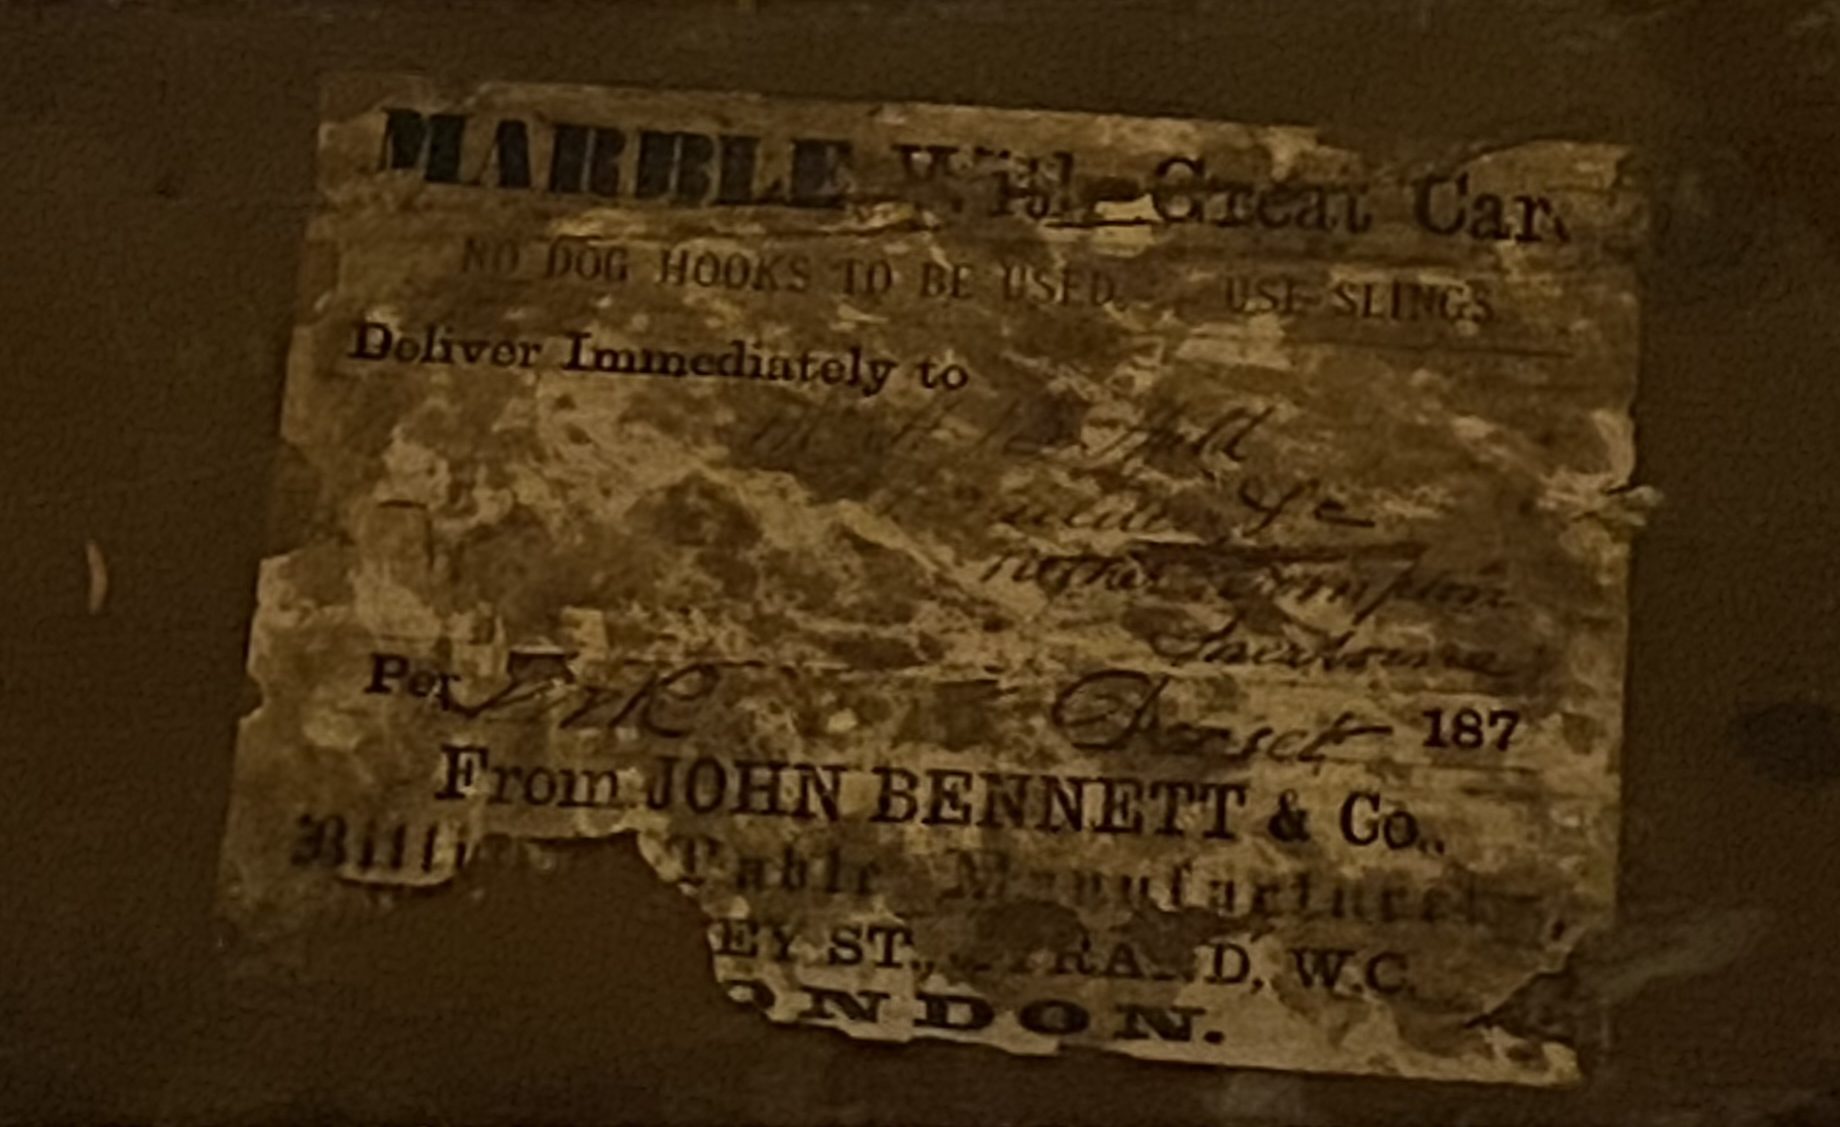 MARBLE With Great Car
NO DOG HOOKS TO BE USED. USE SLINGS
Deliver Immediately to
&c
Compton
Sherborne
Per Dorset 187
From JOHN BENNETT & Co.,
Table Manufacturers,
EY ST., STRAND, W.C.
ONDON.